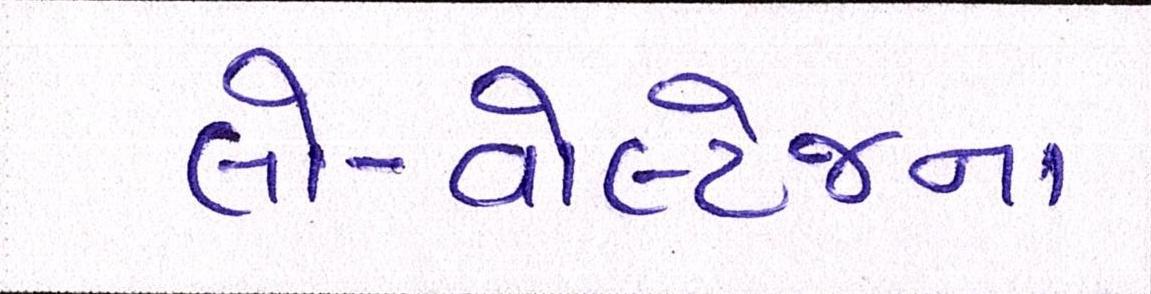 લો-વોલ્ટેજના